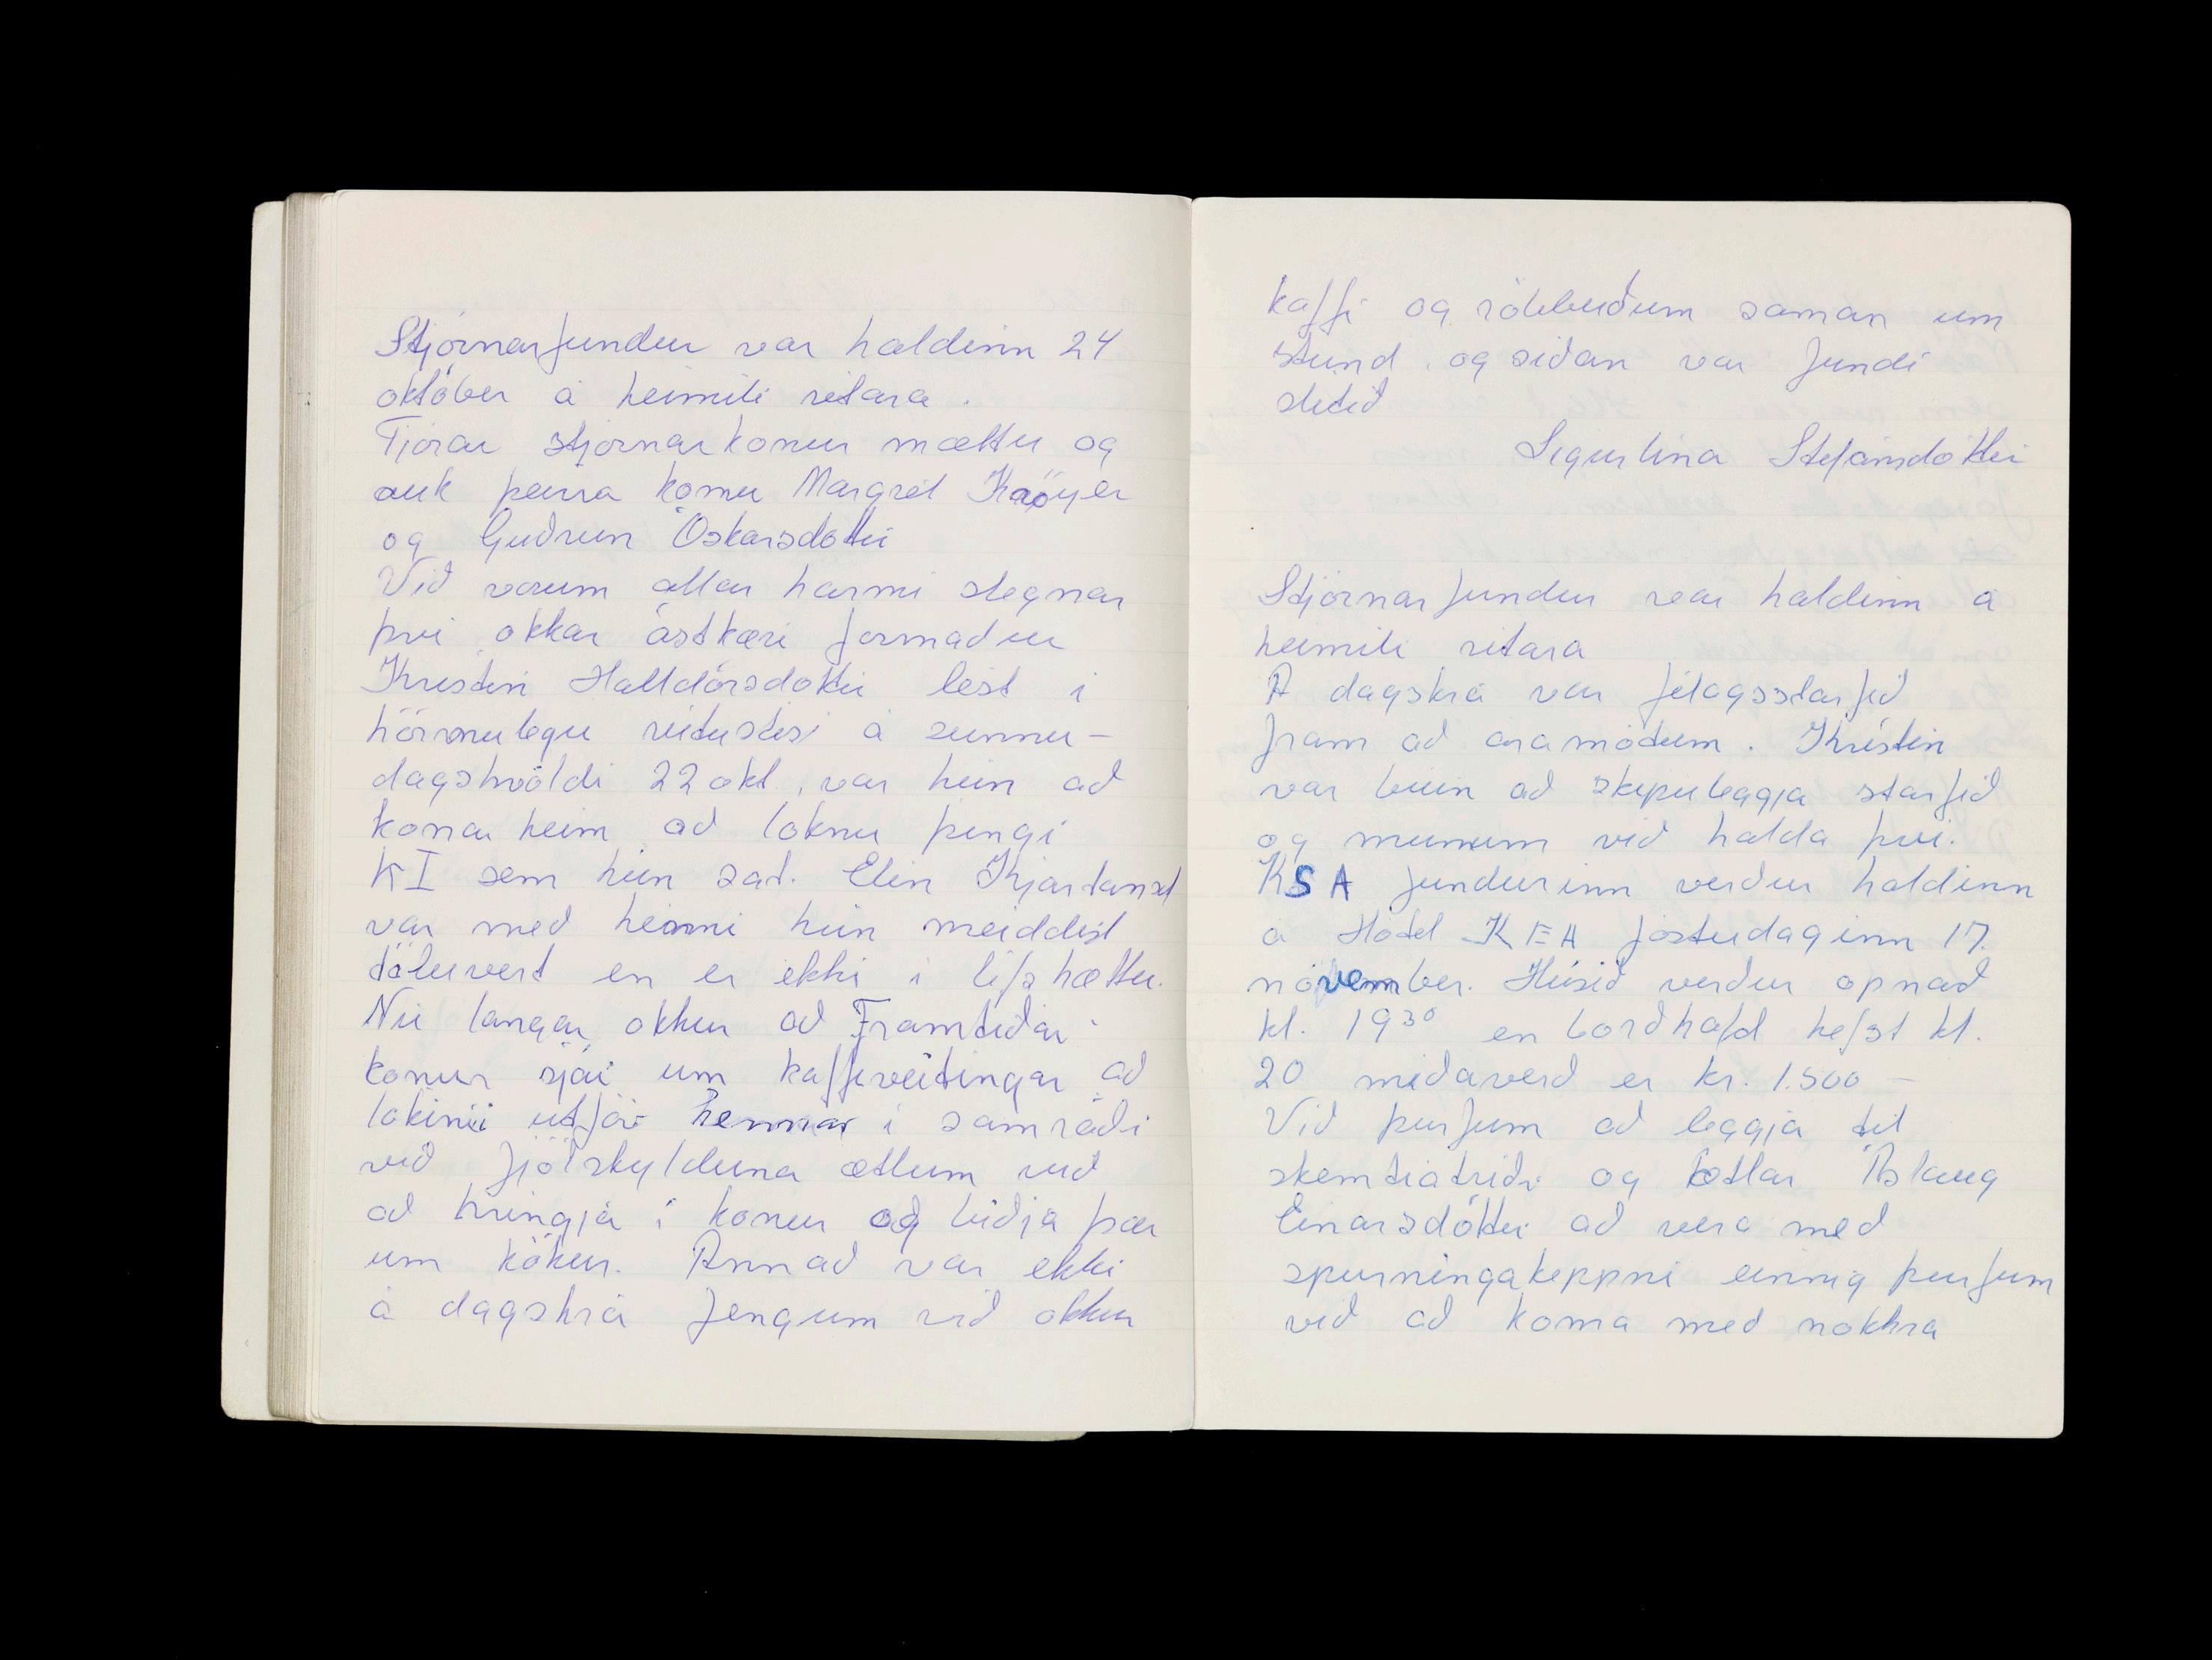 Stjórnarfundur var haldinn 24
október á heimili ritara.
Fjórar stjórnarkonur mættu og
auk þeirra komu Margrét Kröyer
og Guðrun Óskarsdóttir
Við vorum allar harmi slegnar
því okkar ástkæri formaður
Kristín Halldórsdóttir lést í
hörmulegu rútuslysi á sunnu-
dagskvöldi 22 okt, var hún að
koma heim að loknu þingi
KÍ sem hún sat. Elín Kjartansd
var með henni hún meiddist
töluvert en er ekki í lífshættu.
Nú langar okkur að Framtíðar-
konur sjái um kaffiveitingar að
lokinni útför hennar í samráði
við fjölskylduna ætlum við
að hringja í konur og biðja þær
um kökur. Annað var ekki
á dagskrá fengum við okkur
kaffi og röbbuðum saman um
stund og síðan var fundi
slitið
Sigurlína Stefánsdóttir
Stjórnarfundur var haldinn á
heimili ritara
Á dagskrá var félagsstarfið
fram að áramótum. Kristín
var búin að skipuleggja starfið
og munum við halda því.
KSA fundurinn verður haldinn
á Hótel KEA föstudaginn 17.
nóvember. Húsið verður opnað
kl. 19³⁰ en borðhald hefst kl.
20 miðaverð er kr. 1.500 -
Við þurfum að leggja til
skemtiatriði og ætlar Áslaug
Einarsdóttir að vera með
spurningakeppni einnig þurfum
við að koma með nokkra